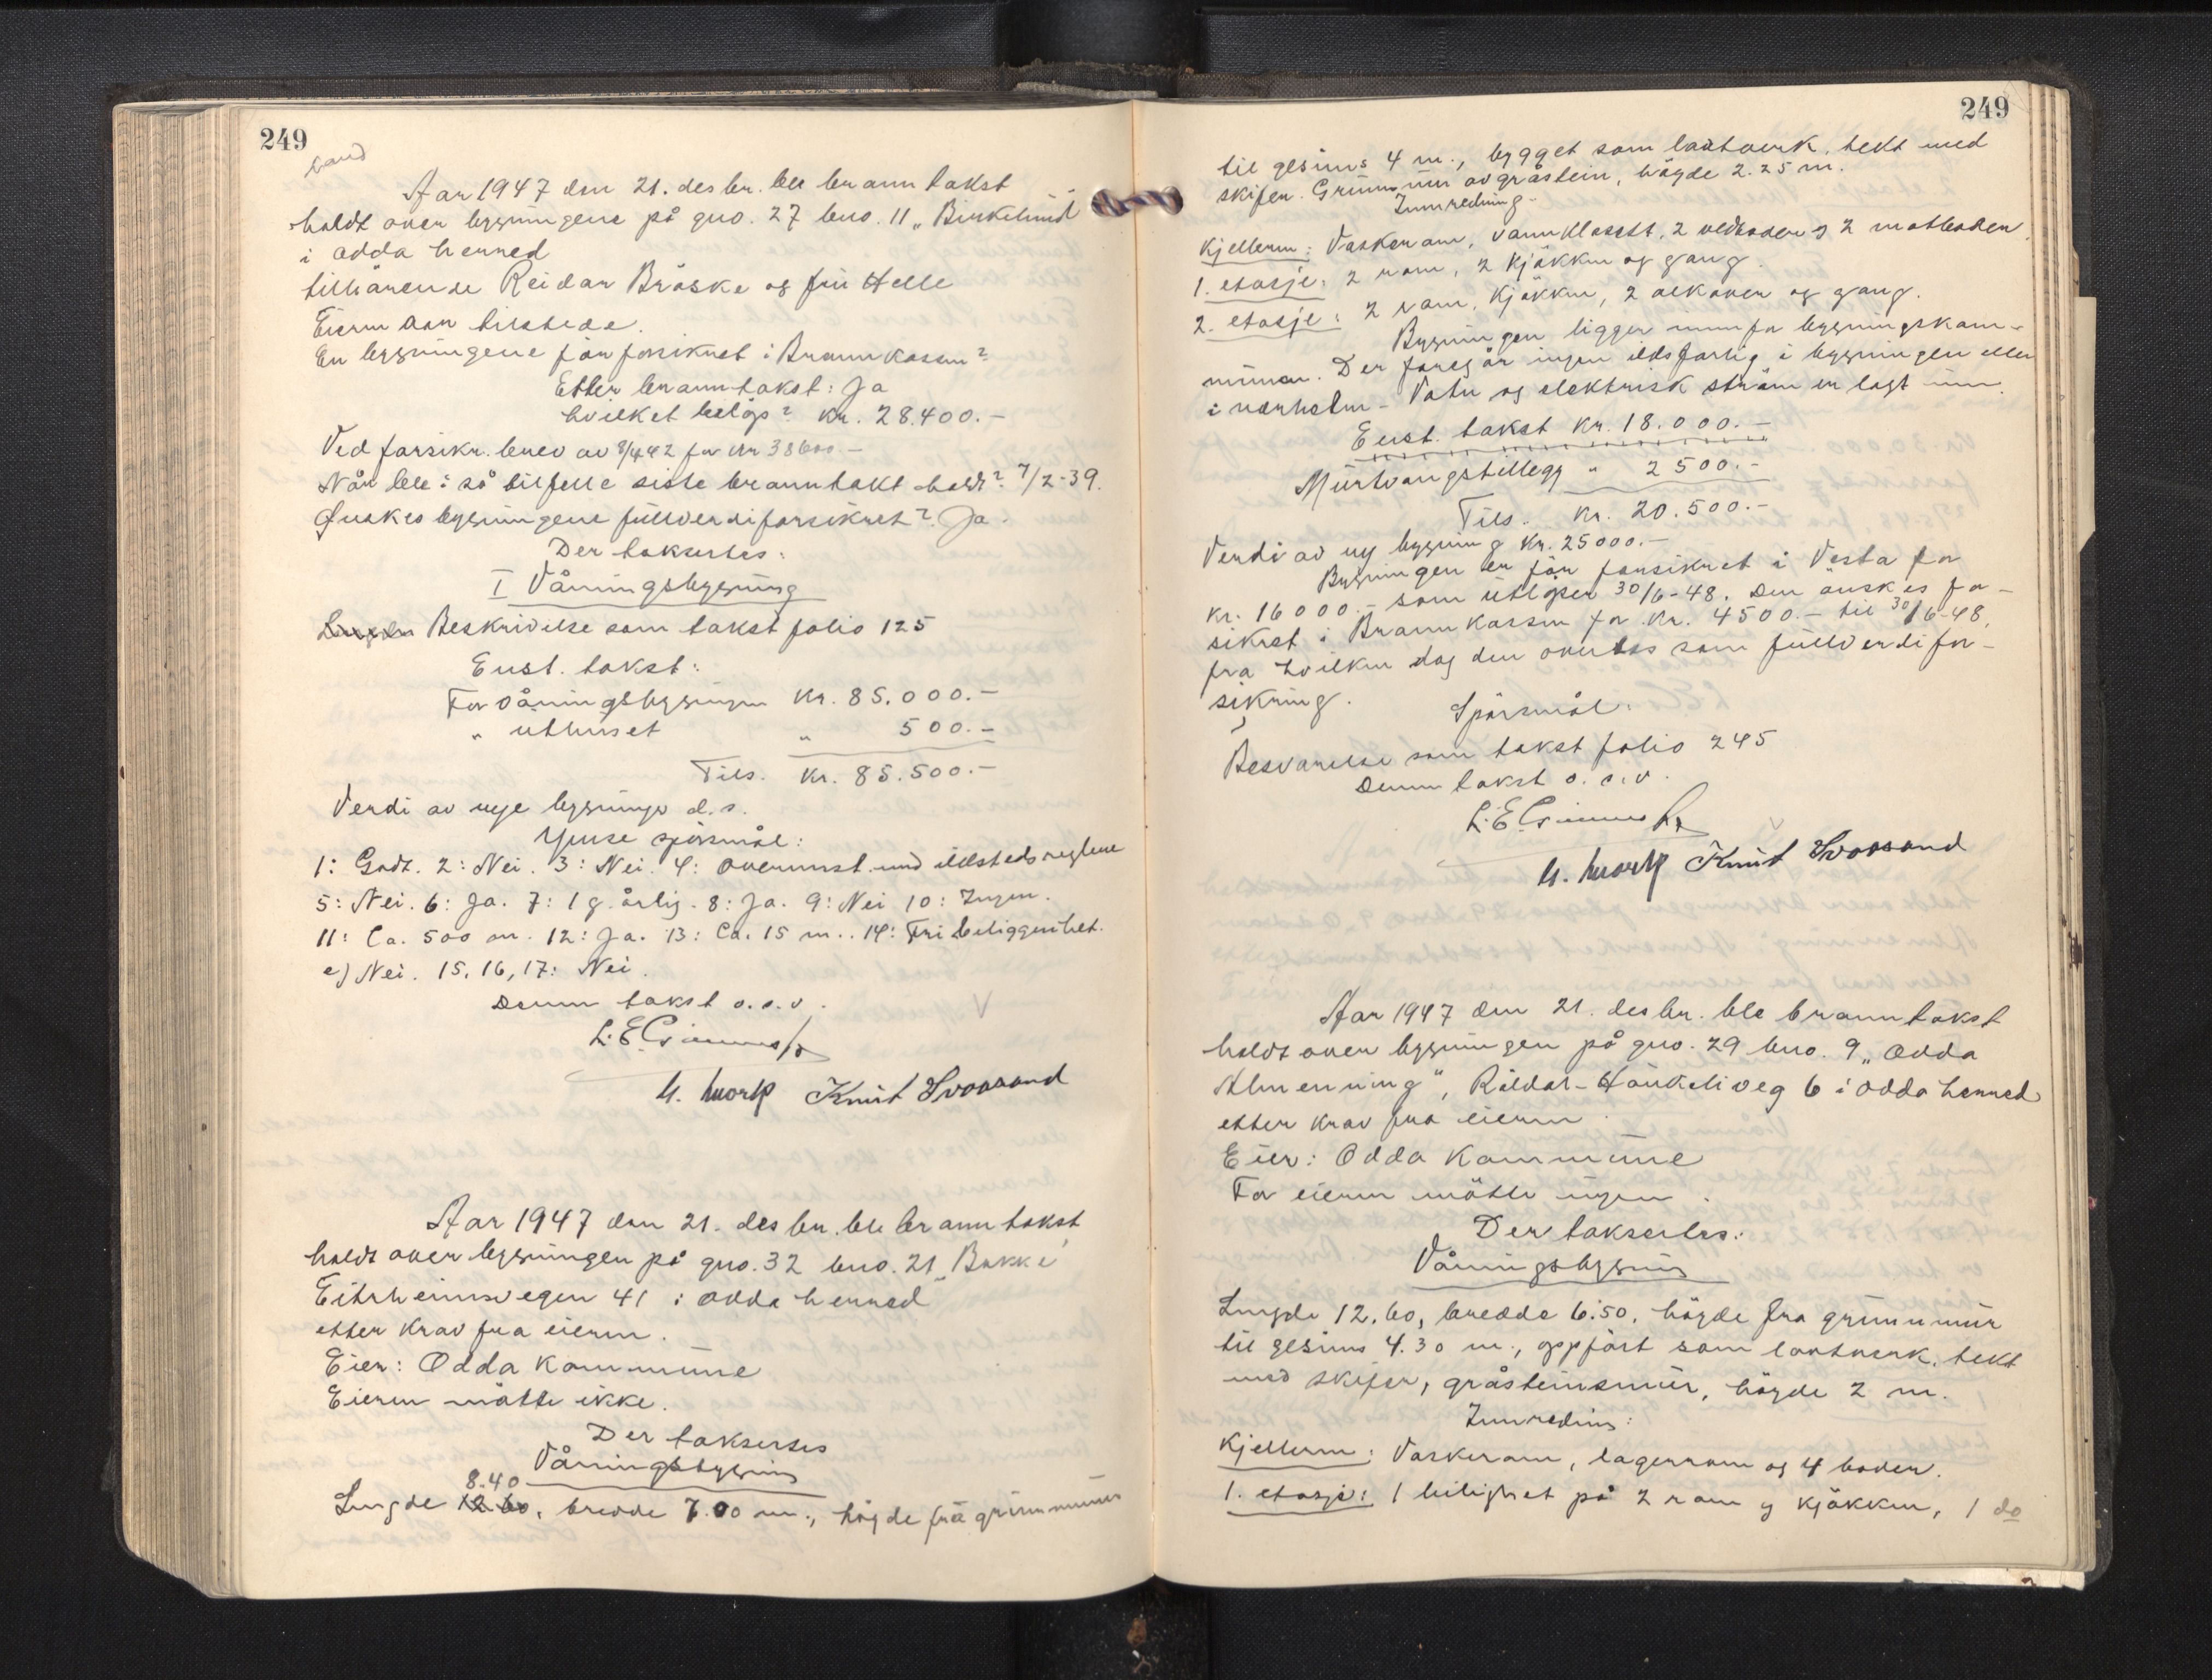 249
Aar 1947 den 21. desbr. ble branntakst
holdt over bygningene på gno. 27 bno. 11 „Birkelund
i Odda herred
tilhørende Reidar Bråske og fru Helle
Eieren var tilstede.
Er bygningene før forsikret i Brannkassen?
Etter branntakst: Ja
hvilket beløp? Kr. 28.400.-
Ved forsikr. brev av 8/4 42 for kr 38600 -
Når ble i så tilfelle siste branntakt holdt? 7/2-39.
Ønskes bygningene fullverdiforsikret? Ja.
Der takseres:
I Våningsbygning
Lengde Beskrivelse som takst folio 125
Enst. takst:
For våningsbygningen Kr. 85.000.-
„ uthuset „ 500.-
Tils. Kr. 85.500.-
Verdi av nye bygninger d.s.
Ymse spørsmål:
1: Godt. 2: Nei. 3: Nei. 4: Overensst. med ildstedsreglene
5: Nei. 6: Ja. 7: 1 g. årlig. 8: Ja. 9: Nei 10: Ingen.
11: Ca. 500 m. 12: Ja. 13: Ca. 15 m.. 14: Fri beliggenhet.
e) Nei. 15, 16, 17: Nei.
Denne takst o.s.v.
Knut
Aar 1947 den 21. desbr. ble branntakst
holdt over bygningen på gno. 32 bno. 21 „Bakke"
Eitrheimsvegen 41 i Odda herred
etter krav fra eieren.
Eier: Odda Kommune
Eieren møtte ikke.
Der takseres
Våningsbygning
8.40
Lengde 12.60, bredde 7.00 m., høyde fra grunnmuren
249
til gesims 4 m., bygget som lastverk, tekt med
skifer. Grunnmur av gråstein, høyde 2.25 m.
Innredning.
Kjelleren: Vaskerom, vannklosett, 2 vedboder og 2 matboder
1. etasje: 2 rom, 2 kjøkken og gang.
2. etasje: 2 rom, kjøkken, 2 alkover og gang.
Bygningen ligger innenfor bygningskom-
munen. Der foregår ingen ildsfarlig i bygningen eller
i nærheten - Vatn og elektrisk strøm er lagt inn.
Enst. takst Kr. 18.000.-
Murtvangstillegg „ 2500.-
Tils. Kr. 20.500.-
Verdi av ny bygning Kr. 25000.-
Bygningen er før forsikret i Vesta for
kr. 16000.- som utløper 30/6-48. Den ønskes for-
sikret i Brannkassen for kr. 4500.- til 30/6-48,
fra hvilken dag den overtas som fullverdifor-
sikring.
Spørsmål:
Besvarelse som takst folio 245
Denne takst o.s.v.
Knut
Aar 1947 den 21. desbr. ble branntakst
holdt over bygningen på gno. 29 bno. 9 „Odda
Almenning", Røldal-Haukeliveg 6 i Odda herred
etter krav fra eieren.
Eier: Odda Kommune
For eieren møtte ingen.
Der takseres:
Våningsbygning
Lengde 12.60, bredde 6.50, høyde fra grunnmur
til gesims 4.30 m., oppført som lastverk, tekt
med skifer, gråsteinsmur, høyde 2 m.
Innredning:
Kjelleren: Vaskerom, lagerrom og 4 boder.
1. etasje: 1 leilighet på 2 rom og kjøkken, 1 do